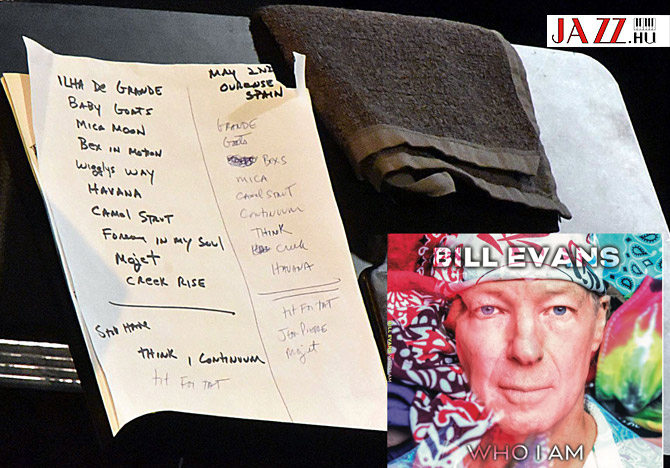 JAZZ.HU
ILHA DE GRANDE
BABY GOATS
MICA MOON
BEX IN MOTION
WIGGLYS WAY
HAVANA
CAMOL STRUT
IN MY SOUL
MOJET
CREEK RISE
THINK
CONTINUUM
tit FOR TAT
MAY 2ND
OURENSE
SPAIN
GRANDE
Goats
BOXS
MICA
CAMOL STRUT
CONTINUUM
THINK
HAVANA
tit FOR TAT
JEAN PIERRE
Mojet
BILL EVANS
WHO I AM